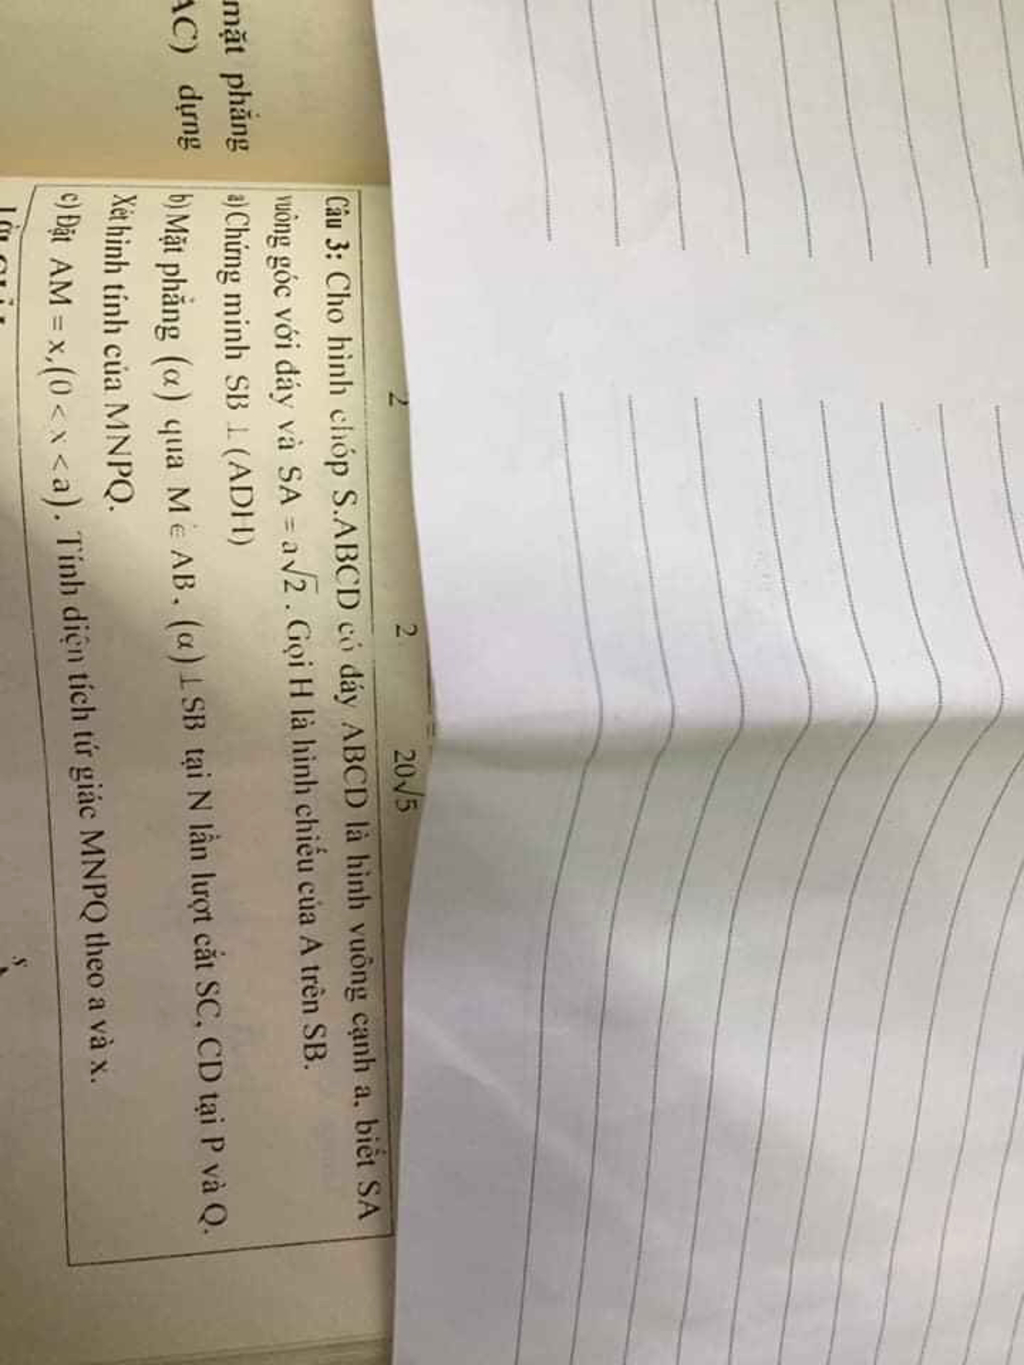 mặt phẳng
AC) dựng
2
2
20√5
Câu 3: Cho hình chóp S.ABCD có đáy ABCD là hình vuông cạnh a, biết SA
vuông góc với đáy và SA = a√2. Gọi H là hình chiếu của A trên SB.
a) Chứng minh SB ⊥ (ADH)
b) Mặt phẳng (α) qua M ∈ AB, (α) ⊥ SB tại N lần lượt cắt SC, CD tại P và Q.
Xét hình tính của MNPQ.
c) Đặt AM = x, (0 < x < a). Tính diện tích tứ giác MNPQ theo a và x.
S